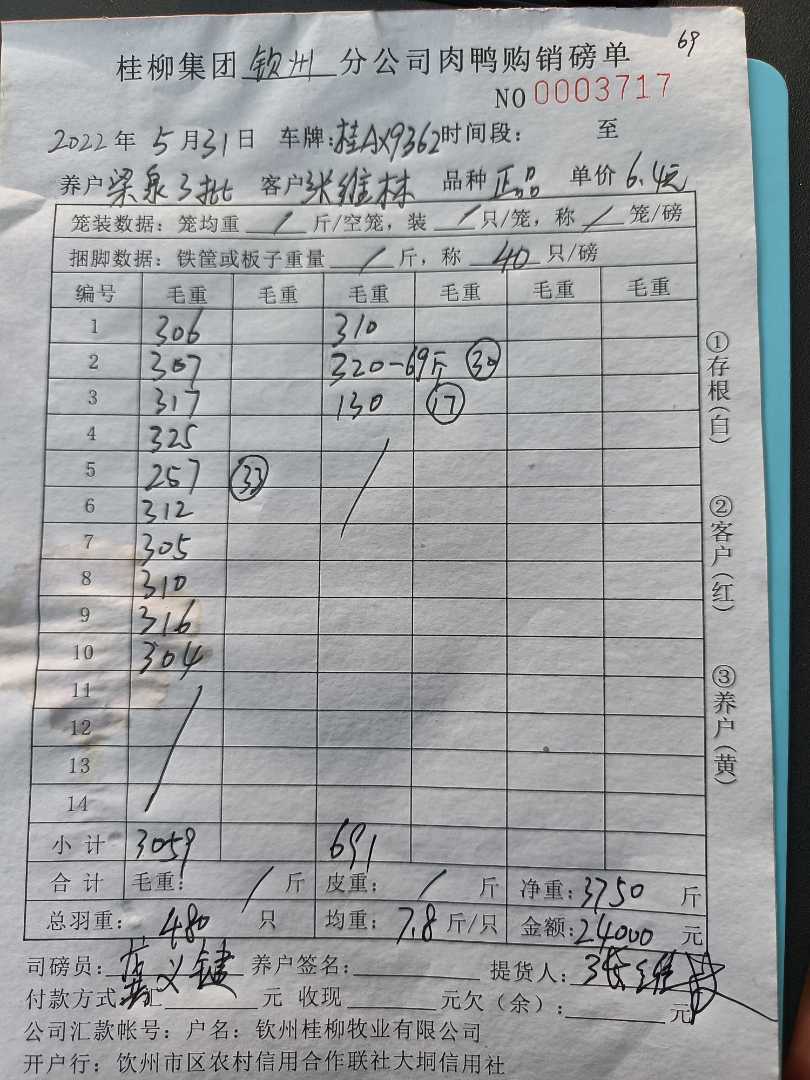 69
桂柳集团 钦州 分公司肉鸭购销磅单
NO 0003717
2022年 5月31日 车牌:桂AX9362 时间段: 至
养户 梁泉3批 客户 张维林 品种 正品 单价 6.4元
笼装数据: 笼均重 / 斤/空笼, 装 / 只/笼, 称 / 笼/磅
捆脚数据: 铁筐或板子重量 / 斤, 称 40 只/磅
编号 毛重 毛重 毛重 毛重 毛重 毛重
1 306 310
2 307 320-69斤 30
3 317 130 17
4 325 /
5 257 33
6 312
7 305
8 310
9 316
10 304
11 /
12
13
14
小计 3059 691
合计 毛重: / 斤 皮重: / 斤 净重: 3750 斤
总羽重: 480 只 均重: 7.8 斤/只 金额: 24000 元
司磅员: 义键 养户签名: 提货人: 张维
付款方式: 汇 元 收现 元欠(余): 元
公司汇款帐号: 户名: 钦州桂柳牧业有限公司
开户行: 饮州市区农村信用合作联社大垌信用社
①存根(白)
②客户(红)
③养户(黄)